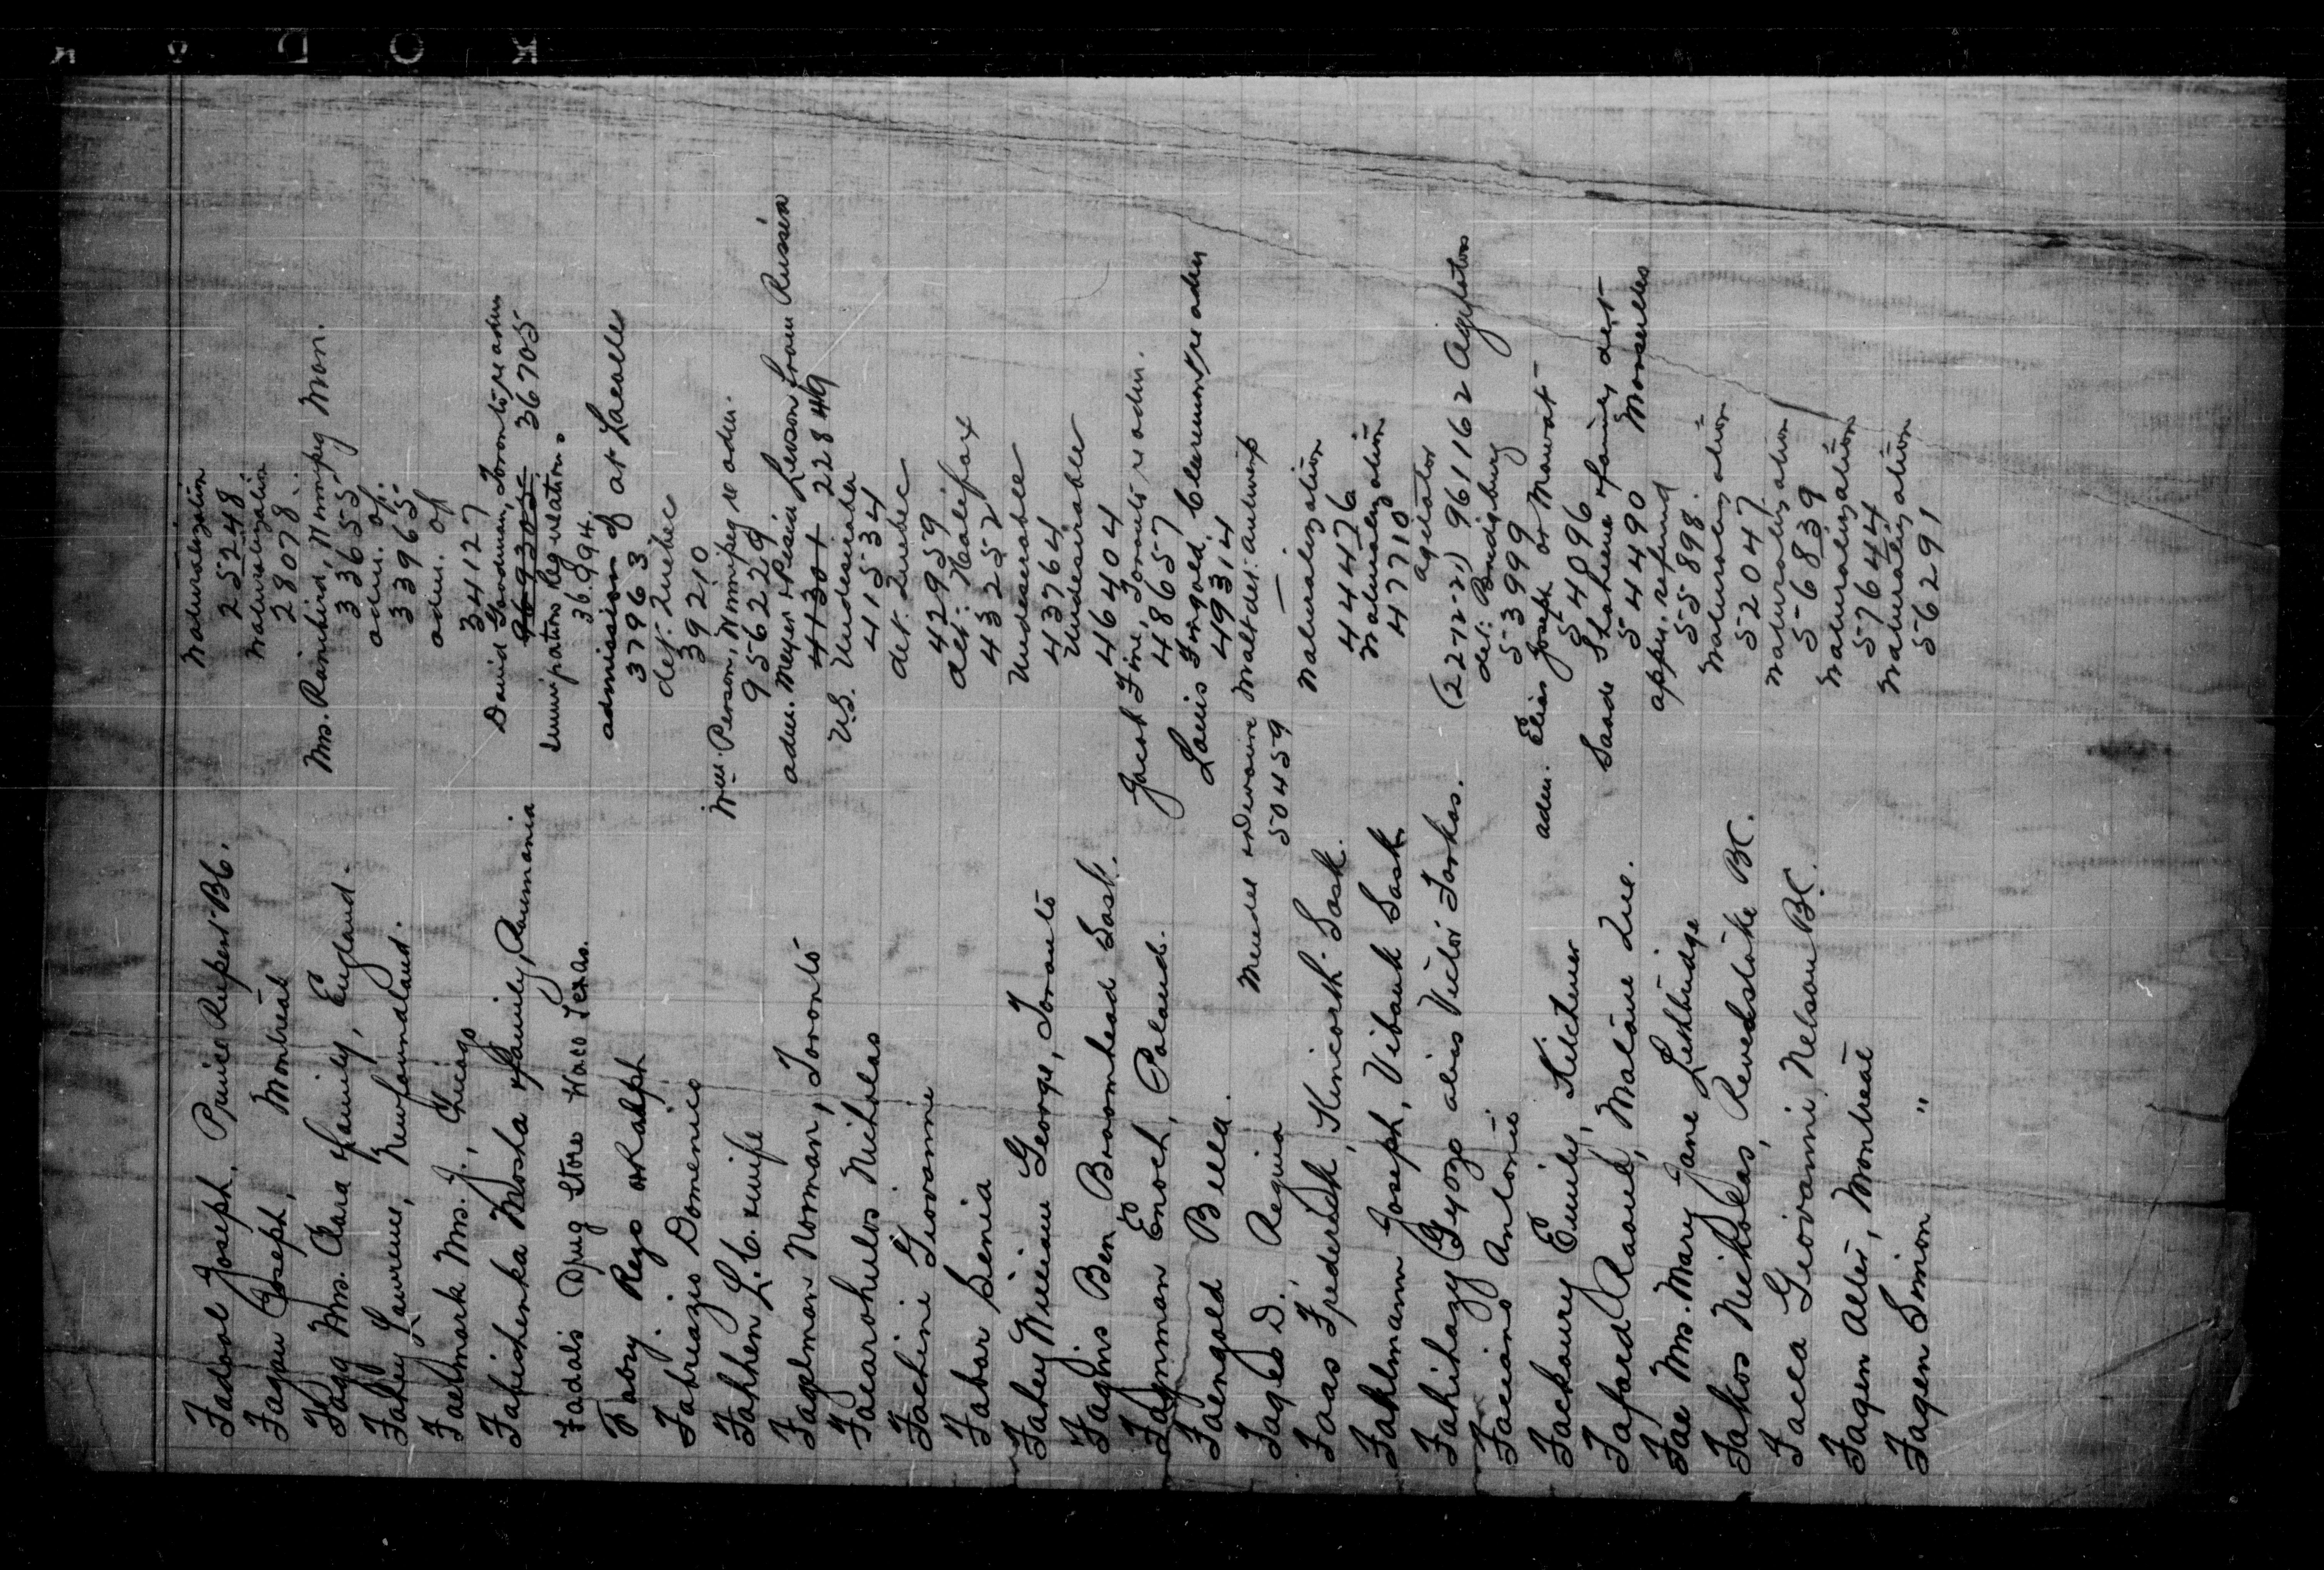 KODAK
Fadool Joseph, Prince Rupert B.C. Naturalization
25248
Fagan Joseph, Montreal Naturalization
28078
Fagg Mrs. Clara & family, England. Mrs. Rainbird, Winnipeg Man.
33655
Fahey Lawrence, Newfoundland. adm. of.
33965
Faelmark Mrs. J., Chicago adm. of
34127
Fabishenka Mosha & family, Roumania David Goodman, Toronto re adm
969305 36705
Faddals Drug Store Waco Texas. Immigration Regulations
36994
Fabry Rezo or Ralph admission of at Lacolle
37963
Fabreazio Domenico det. Quebec
39210
Fahhen L.C. & wife Wm. Person, Winnipeg re adm.
956229
Fagelman Norman, Toronto adm. Meyer & Pesia Lerson from Russia
41301 22849
Facarohulos Nicholas U.S. Undesirable
41534
Fachini Giovanni det. Quebec
42959
Fabar Senia det. Halifax
43252
Fahey William George, Toronto Undesirable
43764
Fagins Ben Broomhead Sask. Undesirable
46404
Fagnman Enoch, Poland. Jacob Fine, Toronto re adm.
48657
Faengold Bella. Louis Fingold, Claremont re adm
49314
Fagles D. Regina Malt det. Antwerp
50459
Faas Frederick, Kincorth Sask. Naturalization
44476
Fahlmann Joseph, Vibank Sask Naturalization
47710
Fahihazy Gyozo alias Victor Farkas. agitator
(22-12-21) 961162 Agitators
Faciano Antonio det. Bridgeburg
53999
Fackoury Emily, Kitchener adm. Elias Joseph or Mawat
54096
Fafard Raoul, Malone Que. Saade Shaheene & family det Marseilles
54490
Fae Mrs. Mary Jane Lethbridge appn. refund
55898.
Fakos Nicholas, Revelstoke BC. Naturalization
52047
Facca Giovanni, Nelson BC. Naturalization
56839
Fagen Alter, Montreal Naturalization
57644
Fagen Simon " Naturalization
56291